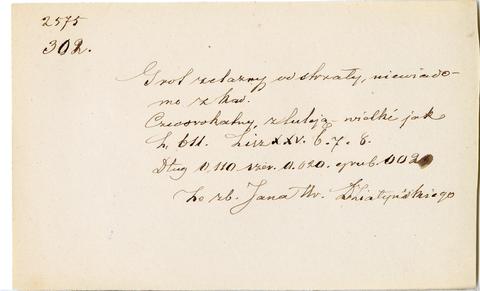 2575
302.
Grot żelazny od strzały, niewiado-
mo zkąd.
Czworokątny, z tuleją – wielki jak
L. 611. Lisz XXV. 6. 7. 8.
Dług 0,110 szer. 0.020. grub. 002
Ze zb. Jana Hr. Działyńskiego